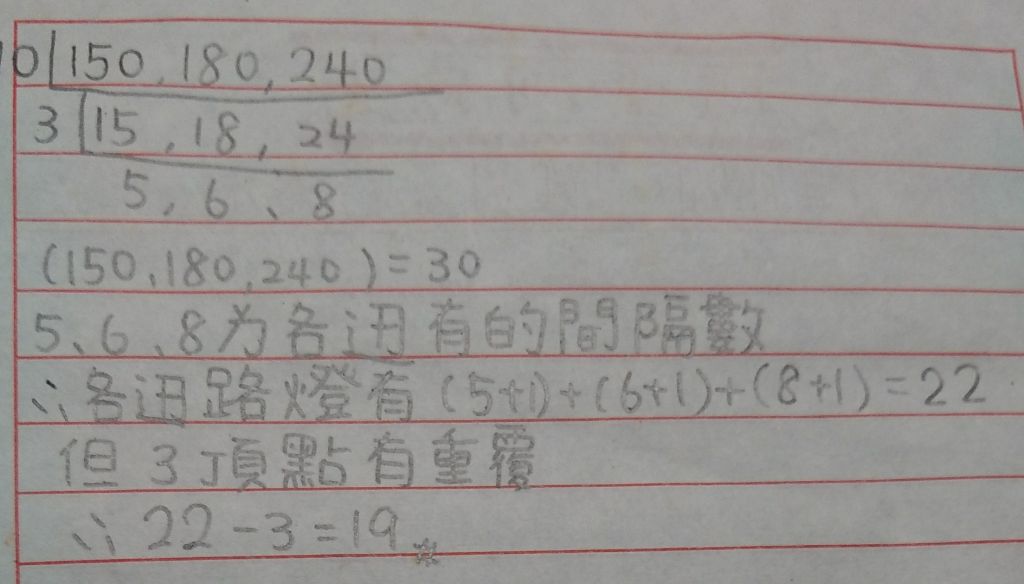 10 150, 180, 240
3 15, 18, 24
5, 6、8
(150,180,240) = 30
5、6、8為各邊有的間隔數
∴各邊路燈有 (5+1)+(6+1)+(8+1)=22
但 3頂點有重覆
∴ 22-3=19